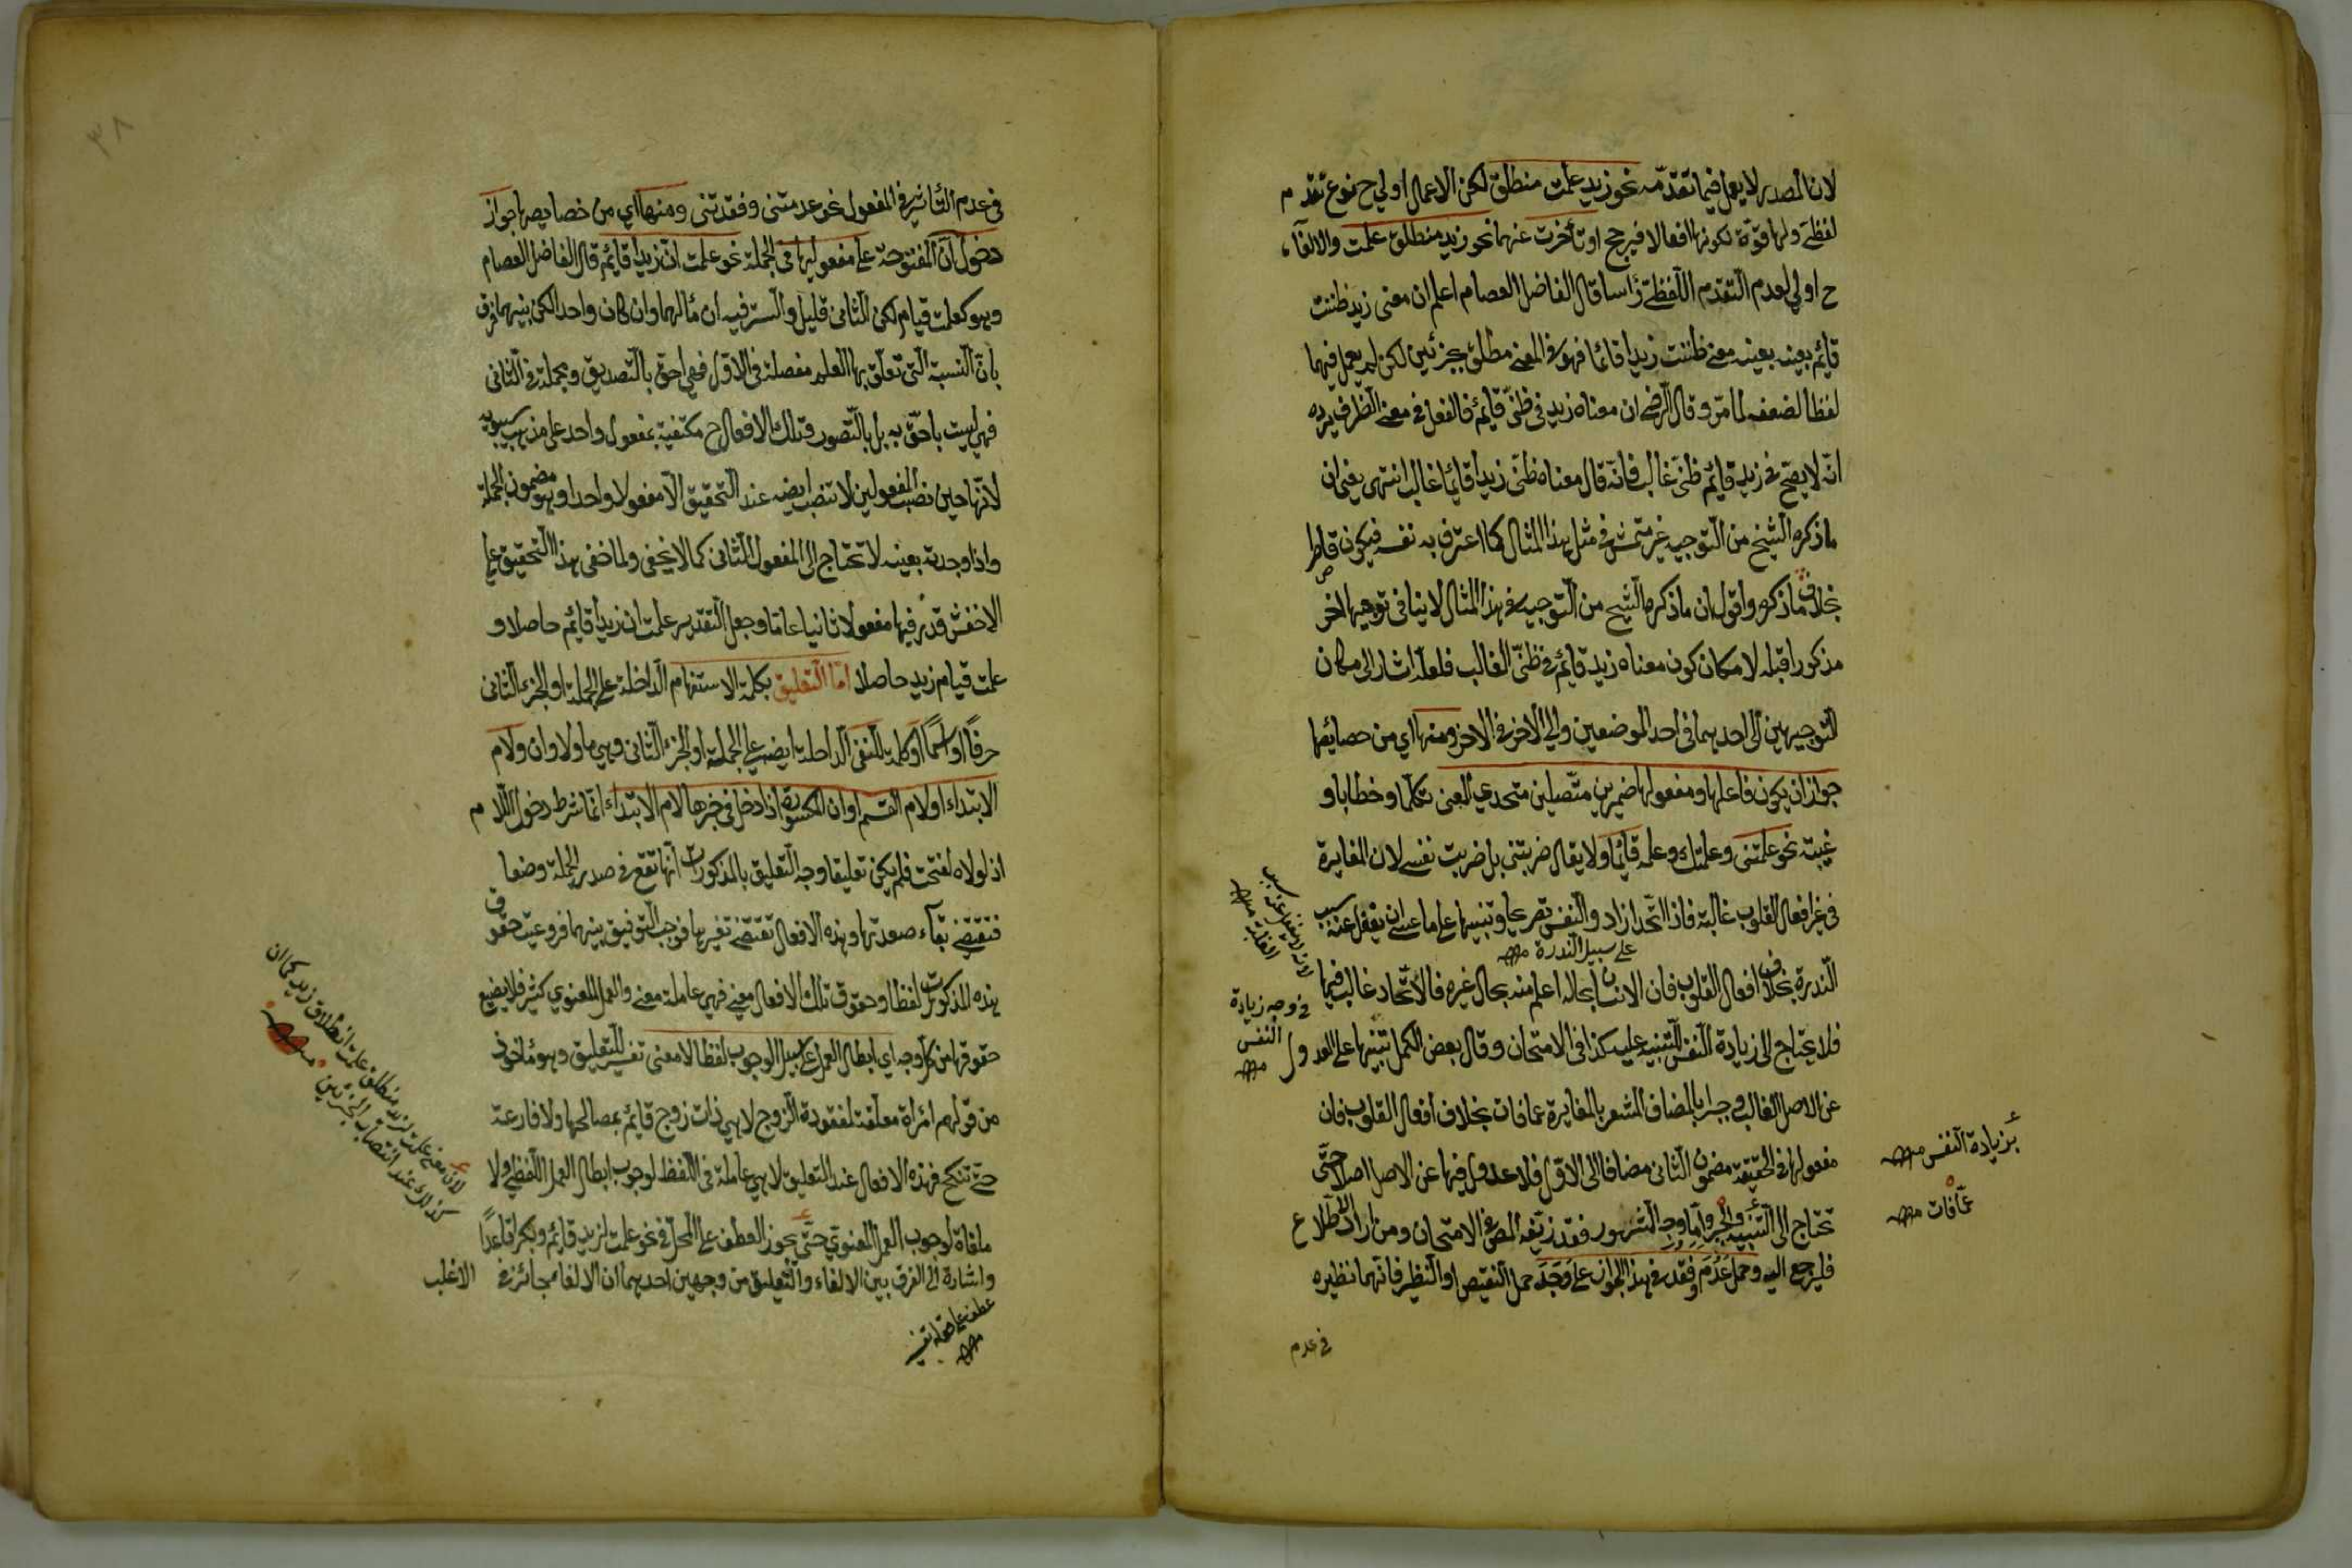 لان المصدر لا يعمل فيما تقدّمه نحو زيد علمت منطلق لكن الاعمال اولي ح بنوع تقدم
لفظيّ ولها قوّة لكونها افعالا فيرجح او تأخرت عنهما نحو زيد منطلق علمت والالغآء
ح اولي لعدم التّقدم اللّفظيّ رٔاسا قال الفاضل العصام اعلم ان معنى زيد ظننت
قائم بعينه بعينه معنى ظننت زيدا قائما فهو في المعنى مطلق بجزئين لكن لم يعمل فيهما
لفظا لضعفه لما مرّ وقال الرّضي ان معناه زيد في ظنّي قائم فالفعل في معنى الظرف يرده
انّه لا يصحّ في زيد قائم ظنّي غالب فانّه قال معناه ظنّي زيدا قائما غالب انتهى يعني ان
ماذكره الشّيخ من التّوجيه غير متمشّ في مثل هذا المثال كما اعترف به نفسه فيكون قاطر
بخلاف ماذكره واقول ان ماذكره الشّيخ من التّوجيه في هذا المثال لا ينافي توجيها اخر
مذكورا قبله لامكان كون معناه زيد قائم في ظنّي الغالب فلعلّه اشار الى مكان
التّوجيهين الى احدهما في احد الموضعين والى الاخر في الاخر ومنها اي من خصايصها
جواز ان يكون فاعلها ومفعولها ضميرين متّصلين متحدي المعنى تكلّما وخطابا و
غيبة نحو علمتني وعلمتك وعلمه قائما ولا يقال ضربتني بل ضربت نفسي لان المغايرة
في غير افعال القلوب غالبة فاذا اتّحدا زاد والنّفس تصريحا وتنبيها على ما عسى ان يغفل عنه بسبب
على سبيل النّدرة منه
النّدرة بخلاف افعال القلوب فان الانسان بحاله اعلم منه بحال غيره فالاتّحاد غالب فيها
فلا يحتاج الى زيادة النّفس للتّنبيه عليه كذا في الامتحان وقال بعض الكمل تنبيها على العدول
عن الاصل الغالب وجبرا بالمضاف المشعر بالمغايرة عمّا فات بخلاف افعال القلوب فان
مفعولها في الحقيقة مضمون الثّاني مضافا الى الاوّل فلا عدول فيها عن الاصل اصلا حتّى
تحتاج الى التّنبيه والجبر وامّا وجه المشهور فقد زيّفه المصّ في الامتحان ومن اراد الاطّلاع
فليرجع اليه وحمل عَدِمَ وفَقَدَ في هذا الجواز على وَجَدَ حمل النّقيض او النّظير فانّهما نظيره
في عدم
لانه لا يغفل عنه بسبب الغلبة منه
في وجه زيادة النّفس منه
بزيادة النّفس منه
عمّا فات منه
٣٨
في عدم التّاثير في المفعول نحو عدمتني وفقدتني ومنها اي من خصايصها جواز
دخول انّ المفتوحة على مفعوليها في الجملة نحو علمت انّ زيدا قائم قال الفاضل العصام
وهو كعلمت قيام لكن الثّاني قليل والسّر فيه ان مٔالهما وان كان واحدا لكن بينهما فرق
بانّ النّسبة الّتي تعلّق بها العلم مفصلة في الاوّل فهي احقّ بالتّصديق ومجملة في الثّاني
فهي ليست باحقّ به بل بالتّصور وتلك الافعال ح مكتفية بمفعول واحد على مذهب سيبويه
لانّها حين نصب المفعولين لا تنصب ايضه عند التّحقيق الّا مفعولا واحدا وهو مضمون الجملة
واذا وجدته بعينه لا تحتاج الى المفعول الثّاني كما لا يخفى ولما خفى هذا التّحقيق على
الاخفش قدّر فيها مفعولا ثانيا عامّا وجعل التّقدير علمت ان زيدا قائم حاصلا و
علمت قيام زيد حاصلا امّا التّعليق بكلمة الاستفهام الدّاخلة على الجملة او الجزء الثّاني
حرفًا او اسمًا او كلمة النّفي الدّاخلة ايضه على الجملة او الجزء الثّاني وهي ما ولا وان ولام
الابتداء او لام القسم او انّ المكسورة اذا دخل في خبرها لام الابتداء انّما شرط دخول اللّام
اذ لولاه لفتحت فلم يكن تعليقا وجه التّعليق بالمذكورات انّها تقع في صدر الجملة وضعا
فتقتضي بقآء صورتها وهذه الافعال تقتضي تغييرها فوجب التّوفيق بينهما فروعيت حقوق
هذه المذكورات لفظا وحقوق تلك الافعال معنى فهي عاملة معنى والعمل المعنوي كثير فلا يضيع
حقوقها من كلّ وجه اي ابطال العمل على سبيل الوجوب لفظا لا معنى تفسير للتّعليق وهو مٔاخوذ
من قولهم امرأة معلّقة لمفقودة الزّوج لا هي ذات زوج قائم بمصالحها ولا فارغة
حتّى تنكح فهذه الافعال عند التّعليق لا هي عاملة في اللّفظ لوجوب ابطال العمل اللّفظي ولا
ملغاة لوجوب العمل المعنوي حتّى يجوز العطف على المحلّ في نحو علمت لزيد قائم وبكرا قاعدًا
واشارة الى الفرق بين الالغاء والتّعليق من وجهين احدهما ان الالغاء جائز في الاغلب
لان معنى علمت لزيد منطلق علمت انطلاق زيد كما ان
كذلك عند انتصاب الجزئين منه
عطف على قوله تفسير منه